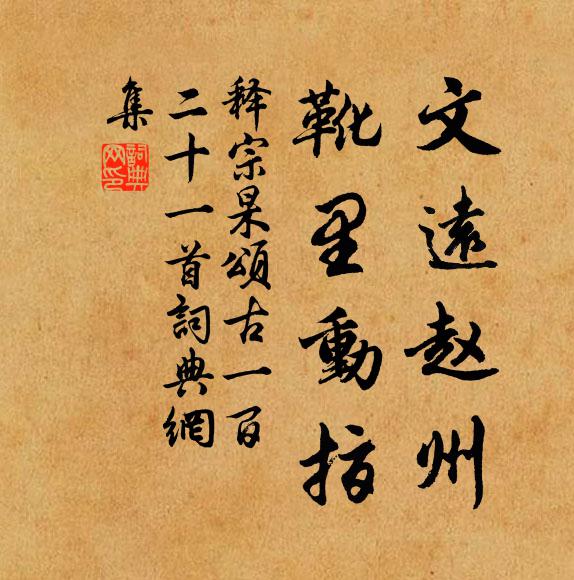 文遠赵州
靴里動指
释宗杲頌古一百
二十一首詞典網
集
詞典
网印